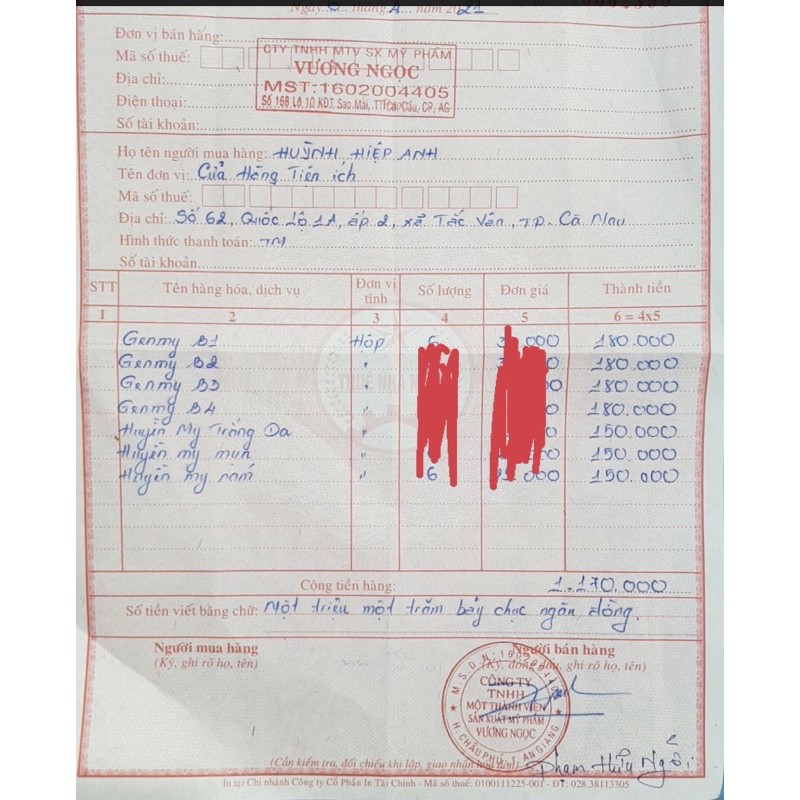 Ngày 6 tháng 4 năm 2021
Đơn vị bán hàng:
Mã số thuế:
Địa chỉ:
Điện thoại:
Số tài khoản:
CTY TNHH MTV SX MỸ PHẨM
VƯƠNG NGỌC
MST:1602004405
Số 168, Lô 10, KDT. Sao Mai, TT Cái Dầu, CP, AG
Họ tên người mua hàng: HUỲNH HIỆP ANH
Tên đơn vị: Cửa Hàng Tiện ích
Mã số thuế:
Địa chỉ: Số 62, Quốc Lộ 1A, ấp 2, xã Tắc Vân, TP. Cà Mau
Hình thức thanh toán: TM
Số tài khoản:
STT Tên hàng hóa, dịch vụ Đơn vị tính Số lượng Đơn giá Thành tiền
1 2 3 4 5 6 = 4x5
Genmy B1 Hộp 6 000 180.000
Genmy B2 " 180.000
Genmy B3 " 180.000
Genmy B4 " 180.000
Huyền My Trắng Da " 150.000
Huyền my mụn " 150.000
Huyền my nám " 6 000 150.000
Cộng tiền hàng: 1.170.000
Số tiền viết bằng chữ: Một triệu một trăm bảy chục ngàn đồng.
Người mua hàng
(Ký, ghi rõ họ, tên)
Người bán hàng
(Ký, đóng dấu, ghi rõ họ, tên)
CÔNG TY
TNHH
MỘT THÀNH VIÊN
SẢN XUẤT MỸ PHẨM
VƯƠNG NGỌC
H. CHÂU PHÚ T. AN GIANG
Phạm Thủy Ngôi
(Cần kiểm tra, đối chiếu khi lập, giao nhận hóa đơn)
In tại Chi nhánh Công ty Cổ Phần In Tài Chính - Mã số thuế: 0100111225-001 - ĐT: 028.38113305